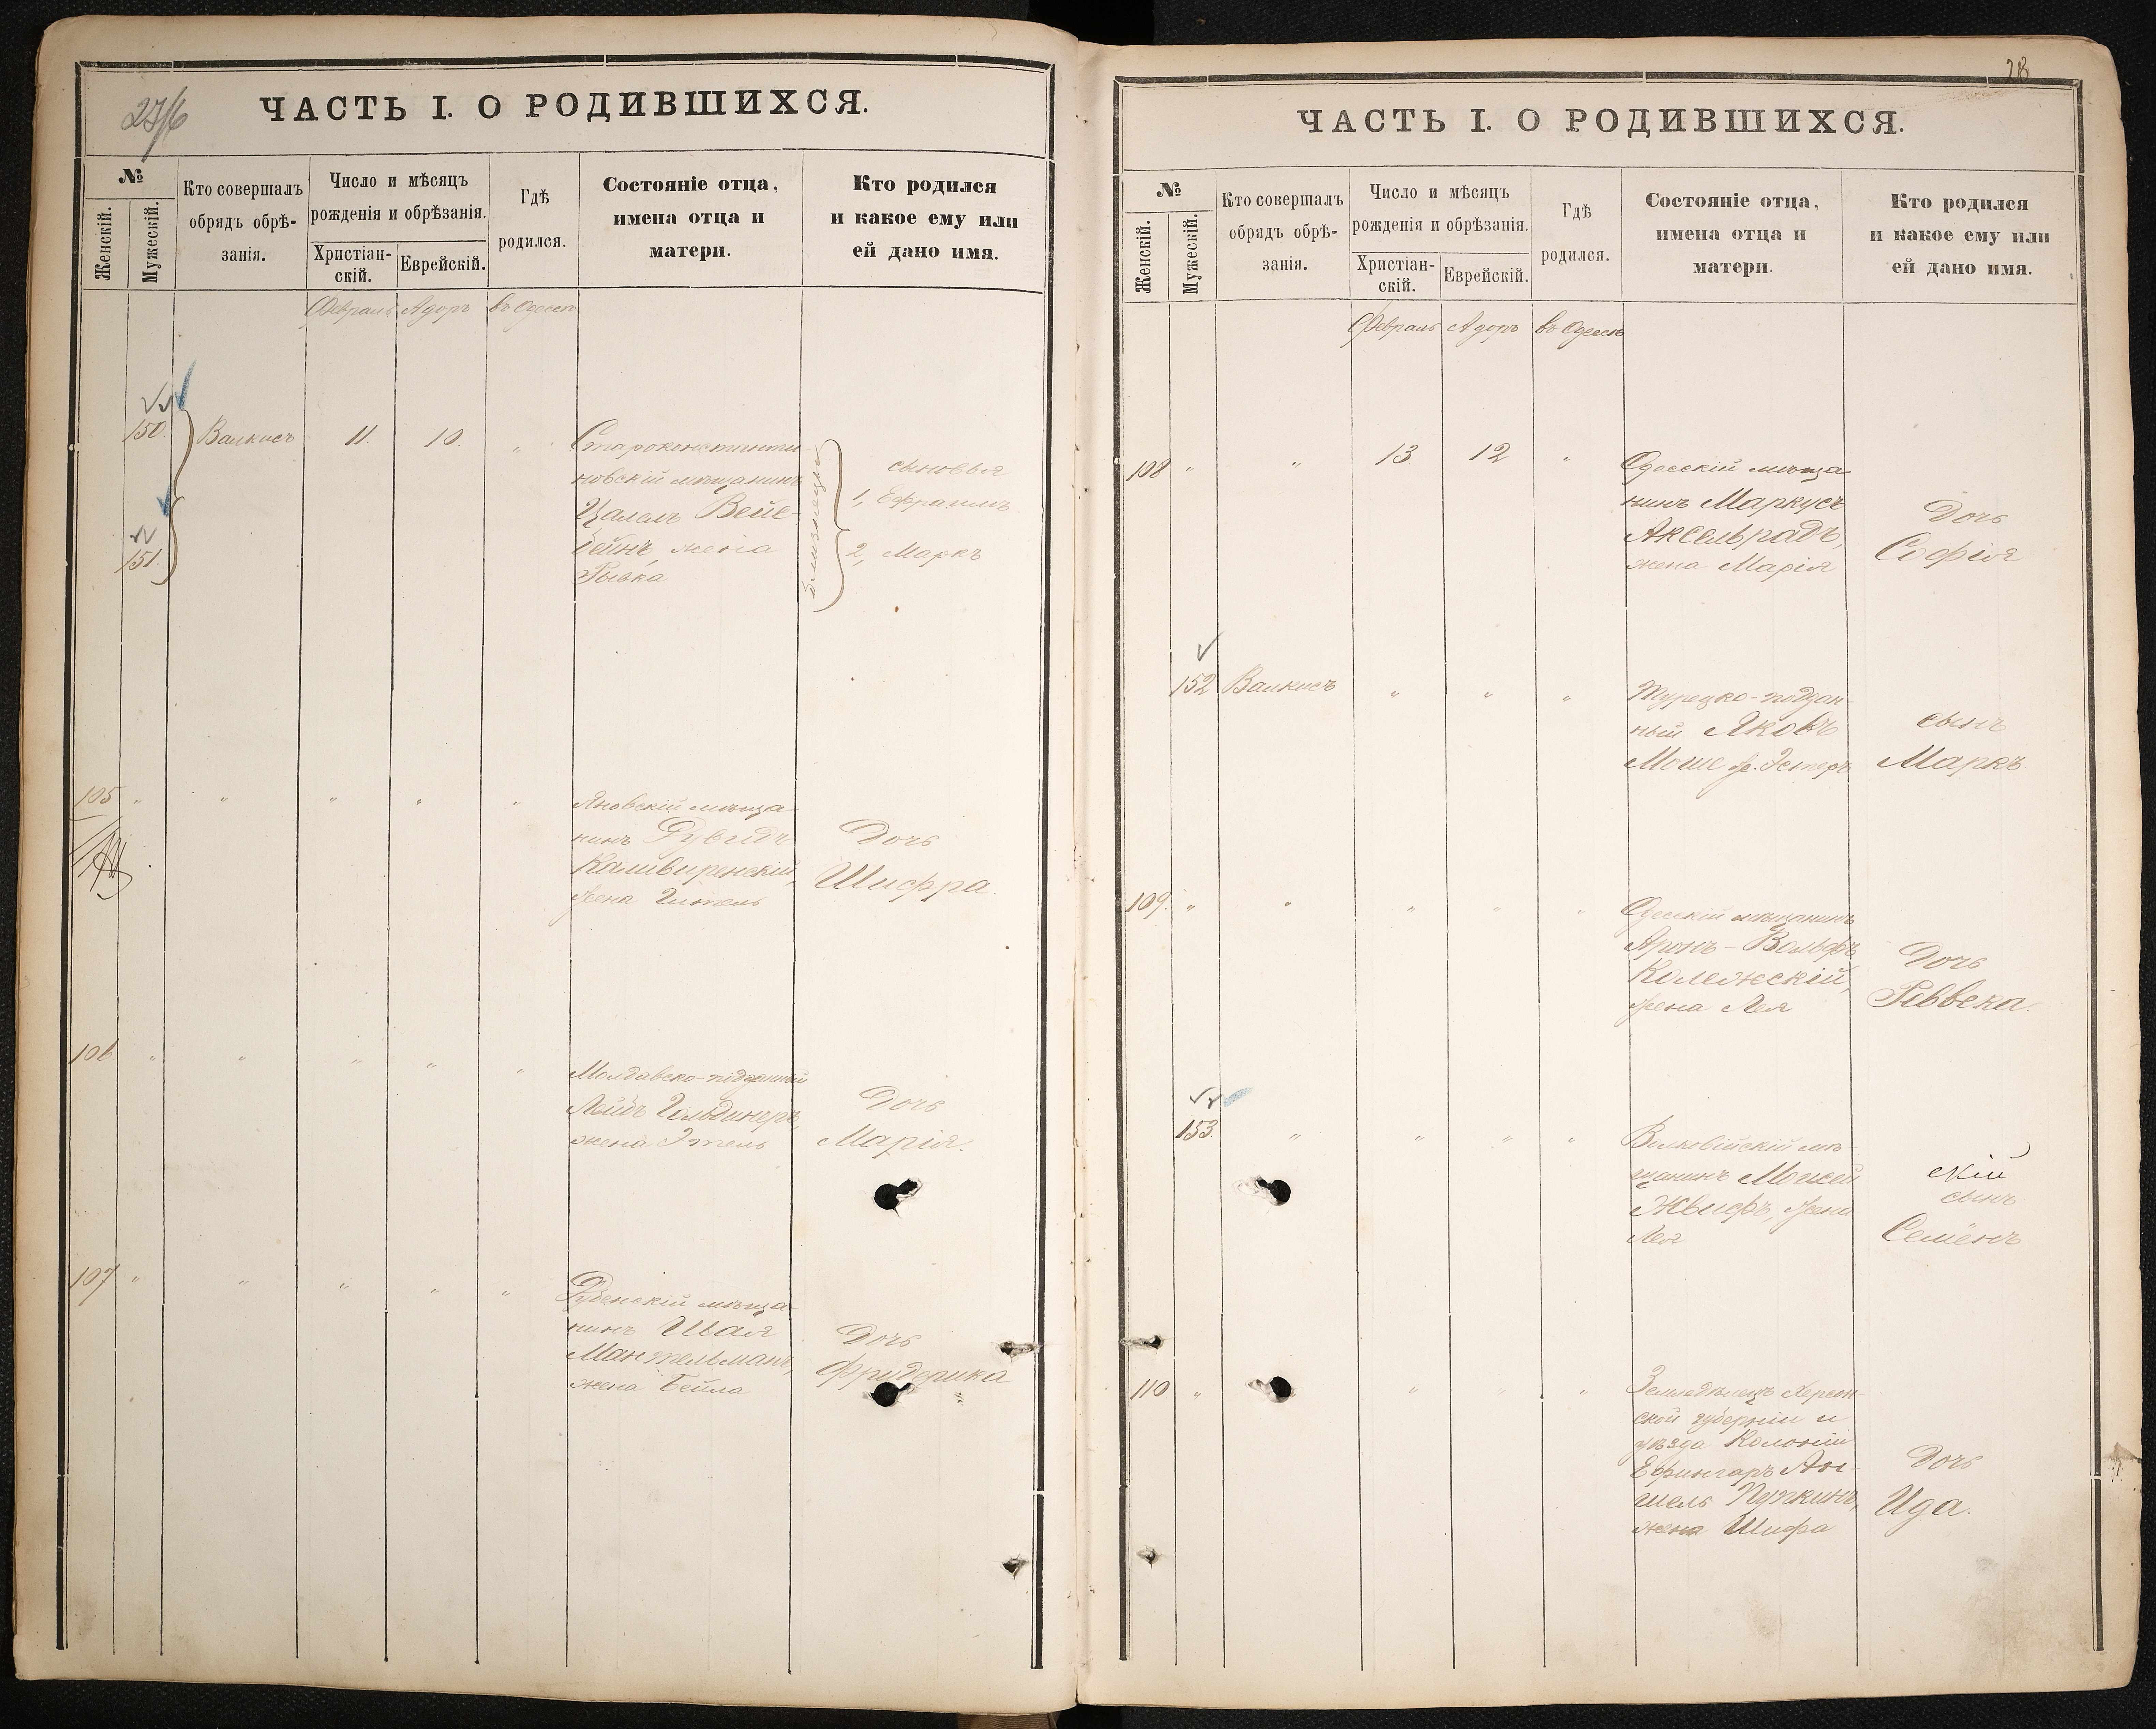 ЧАСТЬ I. О РОДИВШИХСЯ.
№
Женскій.
Мужескій.
Кто совершалъ
обрядъ обрѣ-
занія.
Число и мѣсяцъ
рожденія и обрѣзанія.
Христіан-
скій.
Еврейскій.
Гдѣ
родился.
Состояніе отца,
имена отца и
матери.
Кто родился
и какое ему или
ей дано имя.
Февраль Адоръ въ Одессѣ
150. Валкисъ 11. 10. "
151.
Староконстанти-
новскій мѣщанинъ
Цалель Вейс-
бейнъ жена
Рывка
близнецы
сыновья
1, Ефраимъ
2, Маркъ
105 " " " " "
Яновскій мѣща-
нинъ
жена Гитель
Дочь
Шифра.
106 " " " " "
Молдавско-подданный
Лейбъ Гольдингеръ,
жена Этель
Дочь
Марія.
107 " " " " "
Дубенскій мѣща-
нинъ Шая
Мантельманъ,
жена Бейла
Дочь
Фридерика
28
ЧАСТЬ I. О РОДИВШИХСЯ.
№
Женскій.
Мужескій.
Кто совершалъ
обрядъ обрѣ-
занія.
Число и мѣсяцъ
рожденія и обрѣзанія.
Христіан-
скій.
Еврейскій.
Гдѣ
родился.
Состояніе отца,
имена отца и
матери.
Кто родился
и какое ему или
ей дано имя.
Февраль Адоръ въ Одессѣ
108 " " 13 12 "
Одесскій мѣща-
нинъ Маркусъ
Аксельрадъ,
жена Марія
Дочь
Софія
152 Валкисъ " " "
Турецко-поддан-
ный Яковъ
Моше ж. Эстеръ
сынъ
Маркъ
109. " " " " "
Одесскій мѣщанинъ
Аронъ-Вольфъ
Колежскій,
жена Лея
Дочь
Реввека.
153. " " " "
мѣ-
щанинъ Мошей
жена
Лея
скій
сынъ
Семёнъ
110 " " " "
Земледѣлецъ Херсон-
ской губерніи и
уѣзда Колоніи
Ефингаръ Ан-
шель
жена Шифра
Дочь
Ида.